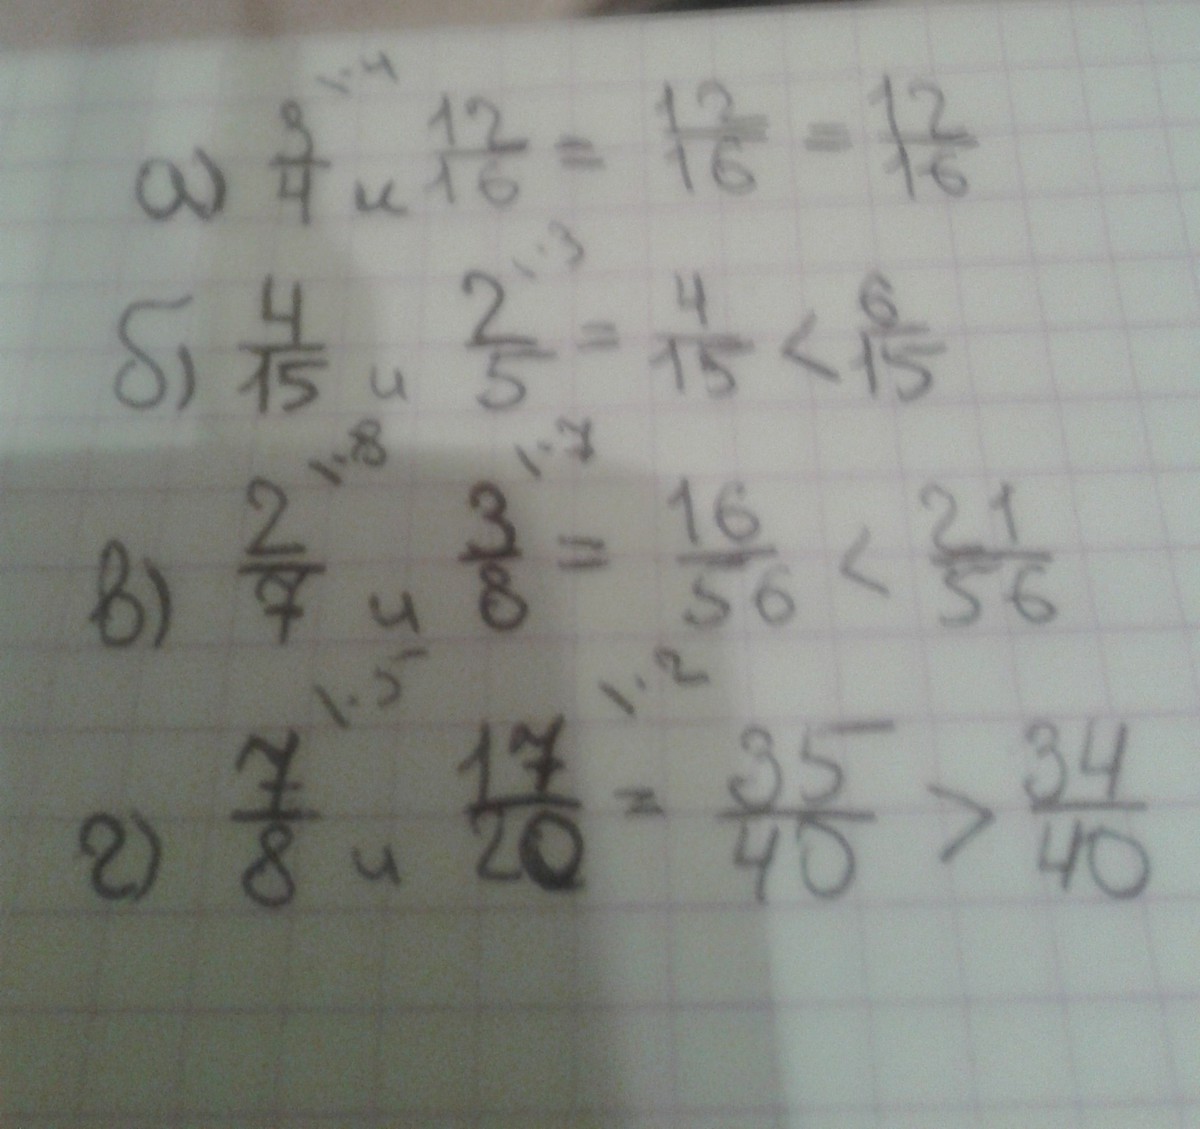 а) 3/4 \·4 и 12/16 = 12/16 = 12/16
б) 4/15 и 2/5 \·3 = 4/15 < 6/15
в) 2/7 \·8 и 3/8 \·7 = 16/56 < 21/56
г) 7/8 \·5 и 17/20 \·2 = 35/40 > 34/40